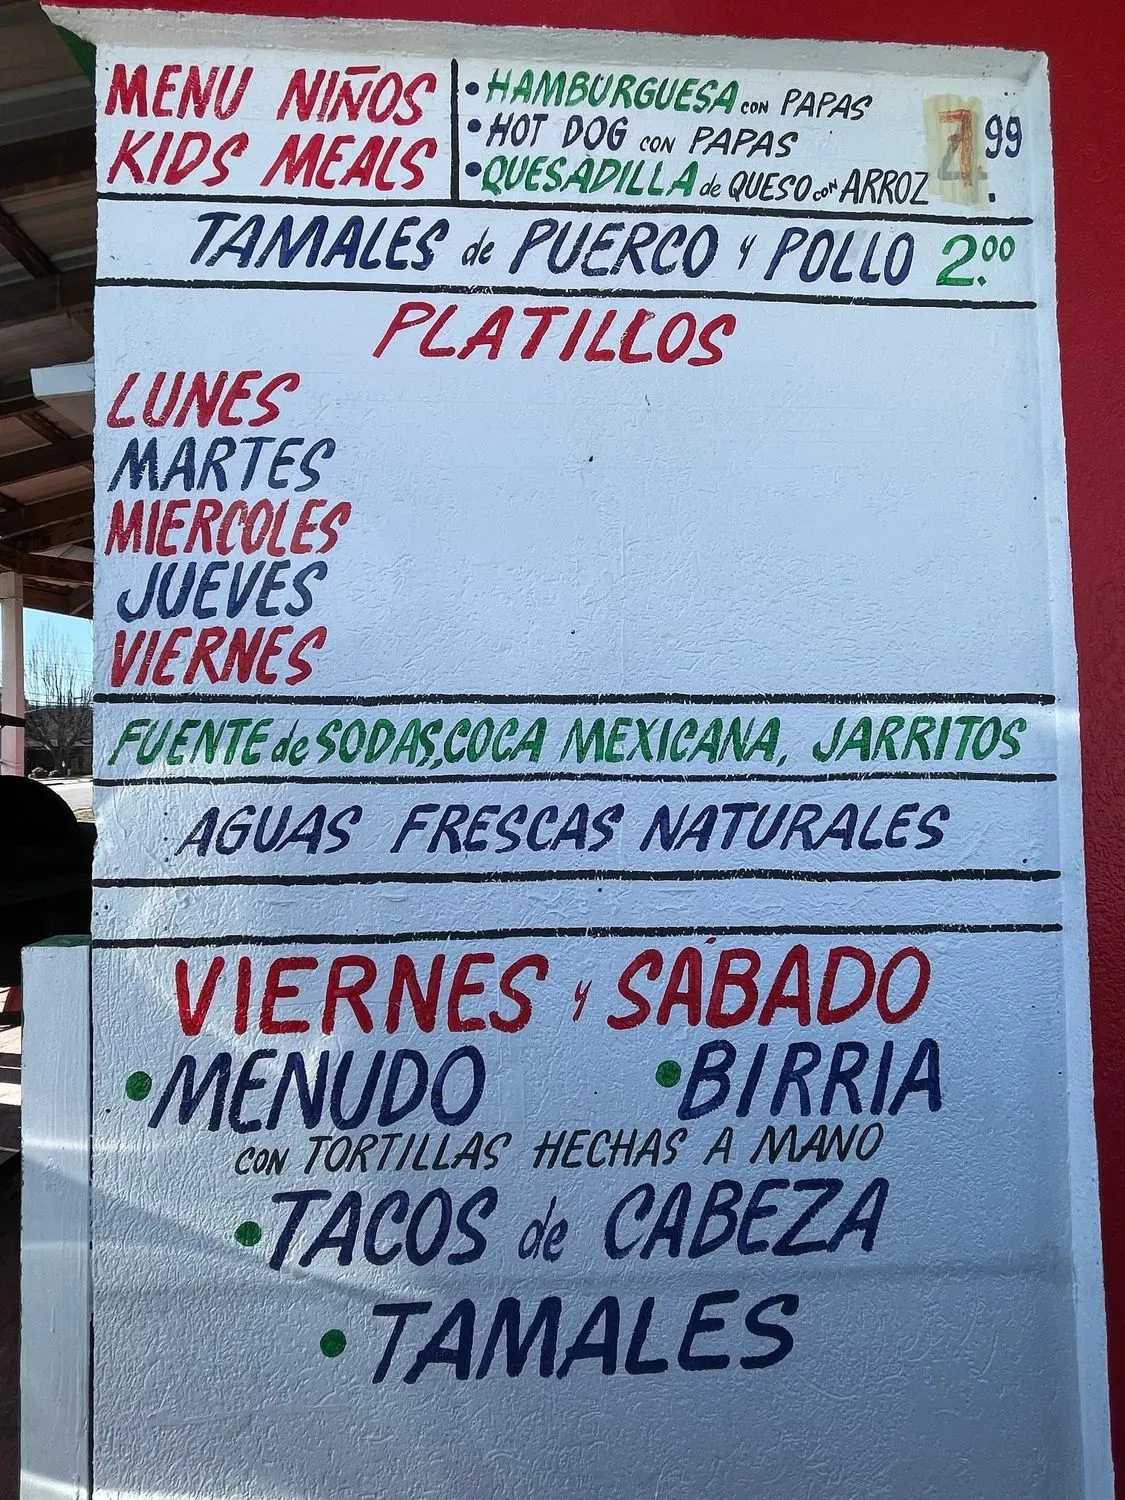 MENU NIÑOS
KIDS MEALS
• HAMBURGUESA CON PAPAS
• HOT DOG CON PAPAS
• QUESADILLA de QUESO CON ARROZ
7.99
TAMALES de PUERCO Y POLLO 2.00
PLATILLOS
LUNES
MARTES
MIERCOLES
JUEVES
VIERNES
FUENTE de SODAS, COCA MEXICANA, JARRITOS
AGUAS FRESCAS NATURALES
VIERNES Y SÁBADO
• MENUDO • BIRRIA
CON TORTILLAS HECHAS A MANO
• TACOS de CABEZA
• TAMALES